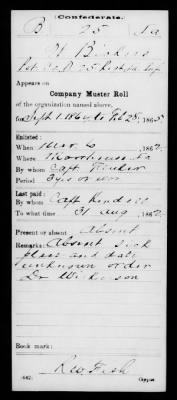 Confederate.
B 25 La
H Bickers
Pvt. Co. D 25 Regt La. Inf.
Appears on
Company Muster Roll
of the organization named above,
for Sept 1.1864 to Feb 28, 1865
Enlisted:
When Mar 6, 1862.
Where Moorhouse La
By whom Capt
Period 3 yrs or war
Last paid:
By whom Capt
To what time 31 Aug, 186
Present or absent Absent
Remarks: Absent sick
place and date
unknown order
Dr
Book mark:
(642) Copyist.